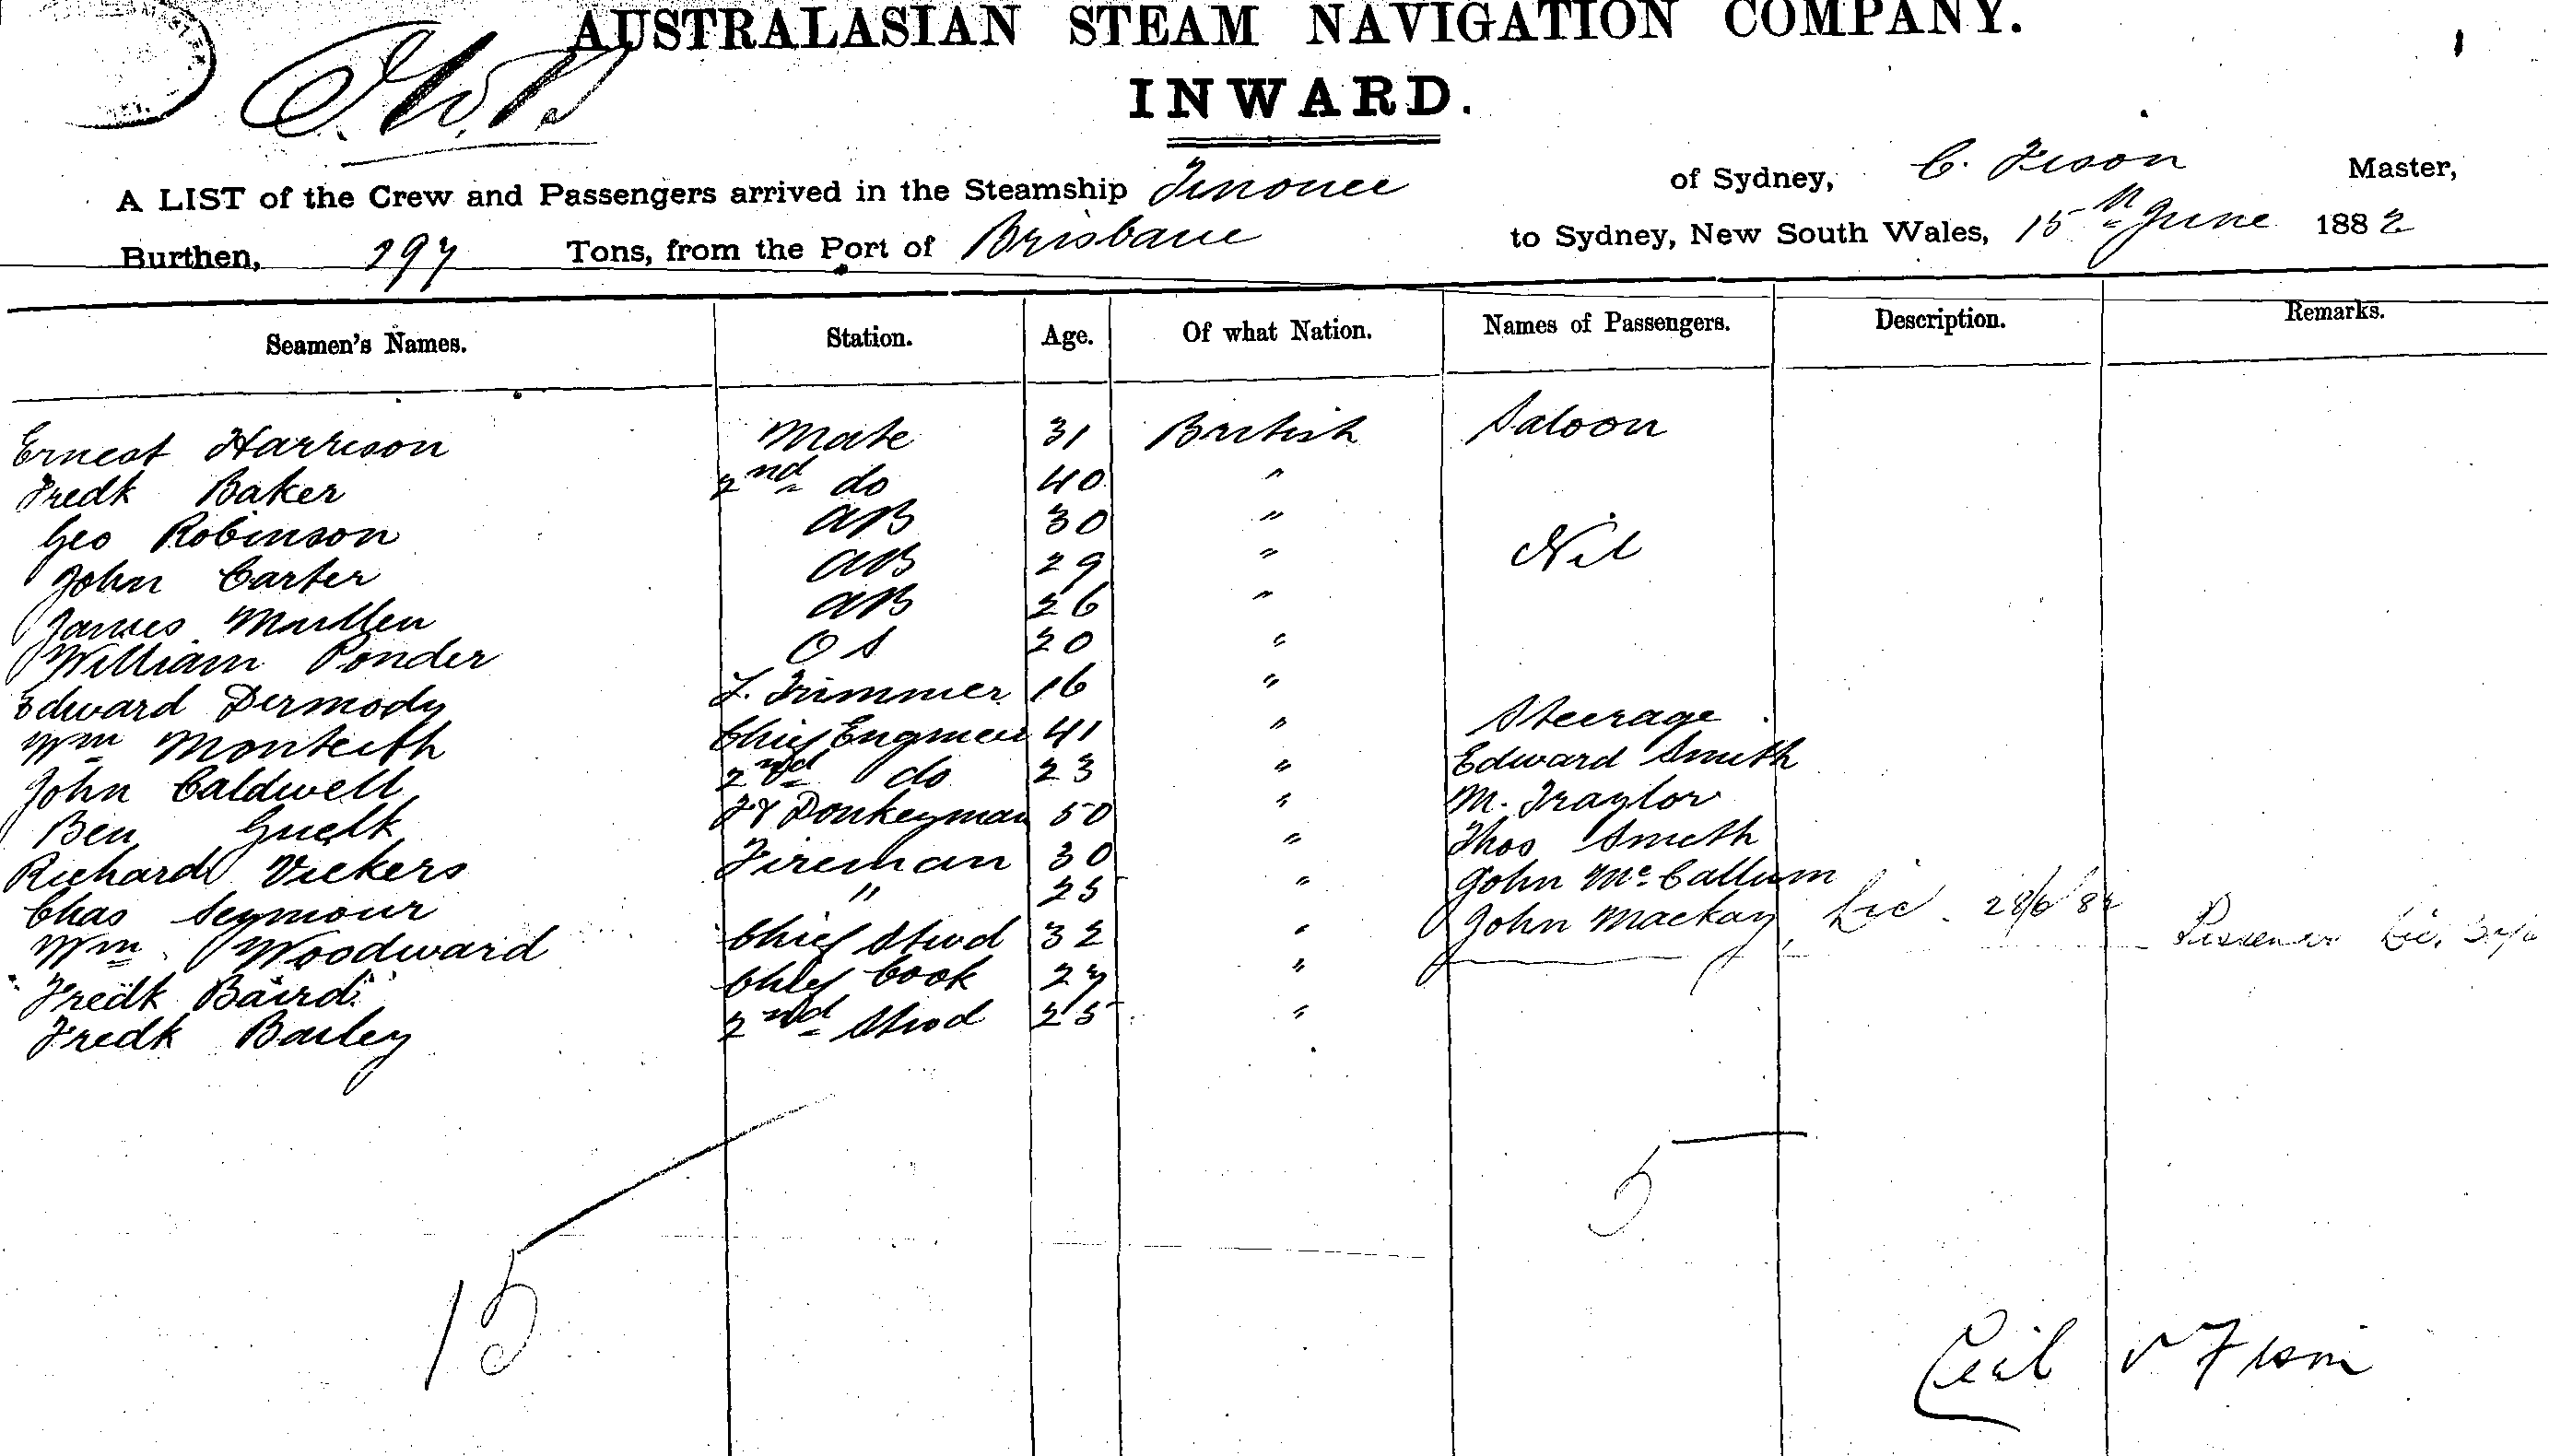 AUSTRALASIAN STEAM NAVIGATION COMPANY.
INWARD.
A LIST of the Crew and Passengers arrived in the Steamship Tinonee of Sydney, C. Fison Master,
Burthen, 297 Tons, from the Port of Brisbane to Sydney, New South Wales, 15th June 1882
Seamen's Names. Station. Age. Of what Nation. Names of Passengers. Description. Remarks.
Ernest Harrison Mate 31 British Saloon
Fredk Baker 2nd do 40 "
Geo Robinson AB 30 "
John Carter AB 29 " Nil
James Mullen AB 26 "
William Ponder OS 20 "
Edward Dermody L. Trimmer 16 "
Wm Monteith Chief Engineer 41 " Steerage
John Caldwell 2nd do 23 " Edward Smith
Ben Donkeyman 50 " M. Traylor
Richard Vickers Fireman 30 " Thos Smith
Chas Seymour " 25 " John McCallum
Wm Woodward Chief Stwd 32 " John Mackay
Fredk Baird Chief Cook 27 "
Fredk Bailey 2nd Stwd 25 "
5
15
Cecil Fison